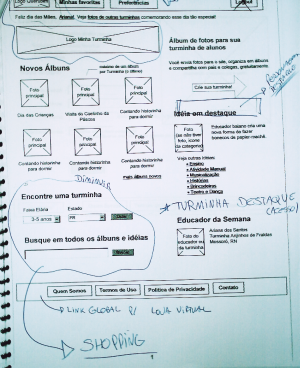 Minha turminha
Minhas Favoritas
Preferências
Logout
Feliz dia das Mães, Ariana! Veja fotos de outras turminhas comemorando esse dia tão especial!
Logo Minha Turminha
Álbum de fotos para sua turminha de alunos
Você envia fotos para o site, organiza em álbuns e compartilha com pais e colegas, gratuitamente.
Crie sua turminha!
Novos Álbuns
Foto principal
Foto principal
Foto principal
Dia das Crianças
Visita do Coelhinho da Páscoa
Contando historinha para dormir
Foto principal
Foto principal
Foto principal
Contando historinha para dormir
Contando historinha para dormir
Contando historinha para dormir
Mais álbuns novos
Idéia em destaque
Foto (se não tiver foto, ícone da categoria)
Educador baiano cria uma nova forma de fazer bonecos de papier-maché.
Veja outras idéias:
Ensino
Atividade Manual
Musicalização
Histórias
Brincadeiras
Teatro e Dança
DIMINUIR
Encontre uma turminha
Faixa Etária
Estado
3-5 anos
PR
Busque em todos os álbuns e idéias
Buscar
* TURMINHA DESTAQUE
Educador da Semana
Foto do educador ou da turminha
Ariana dos Santos
Turminha Anjinhos de Fraldas
Mossoró, RN
Quem Somos
Termos de Uso
Política de Privacidade
Contato
LINK GLOBAL P/ LOJA VIRTUAL
SHOPPING
1